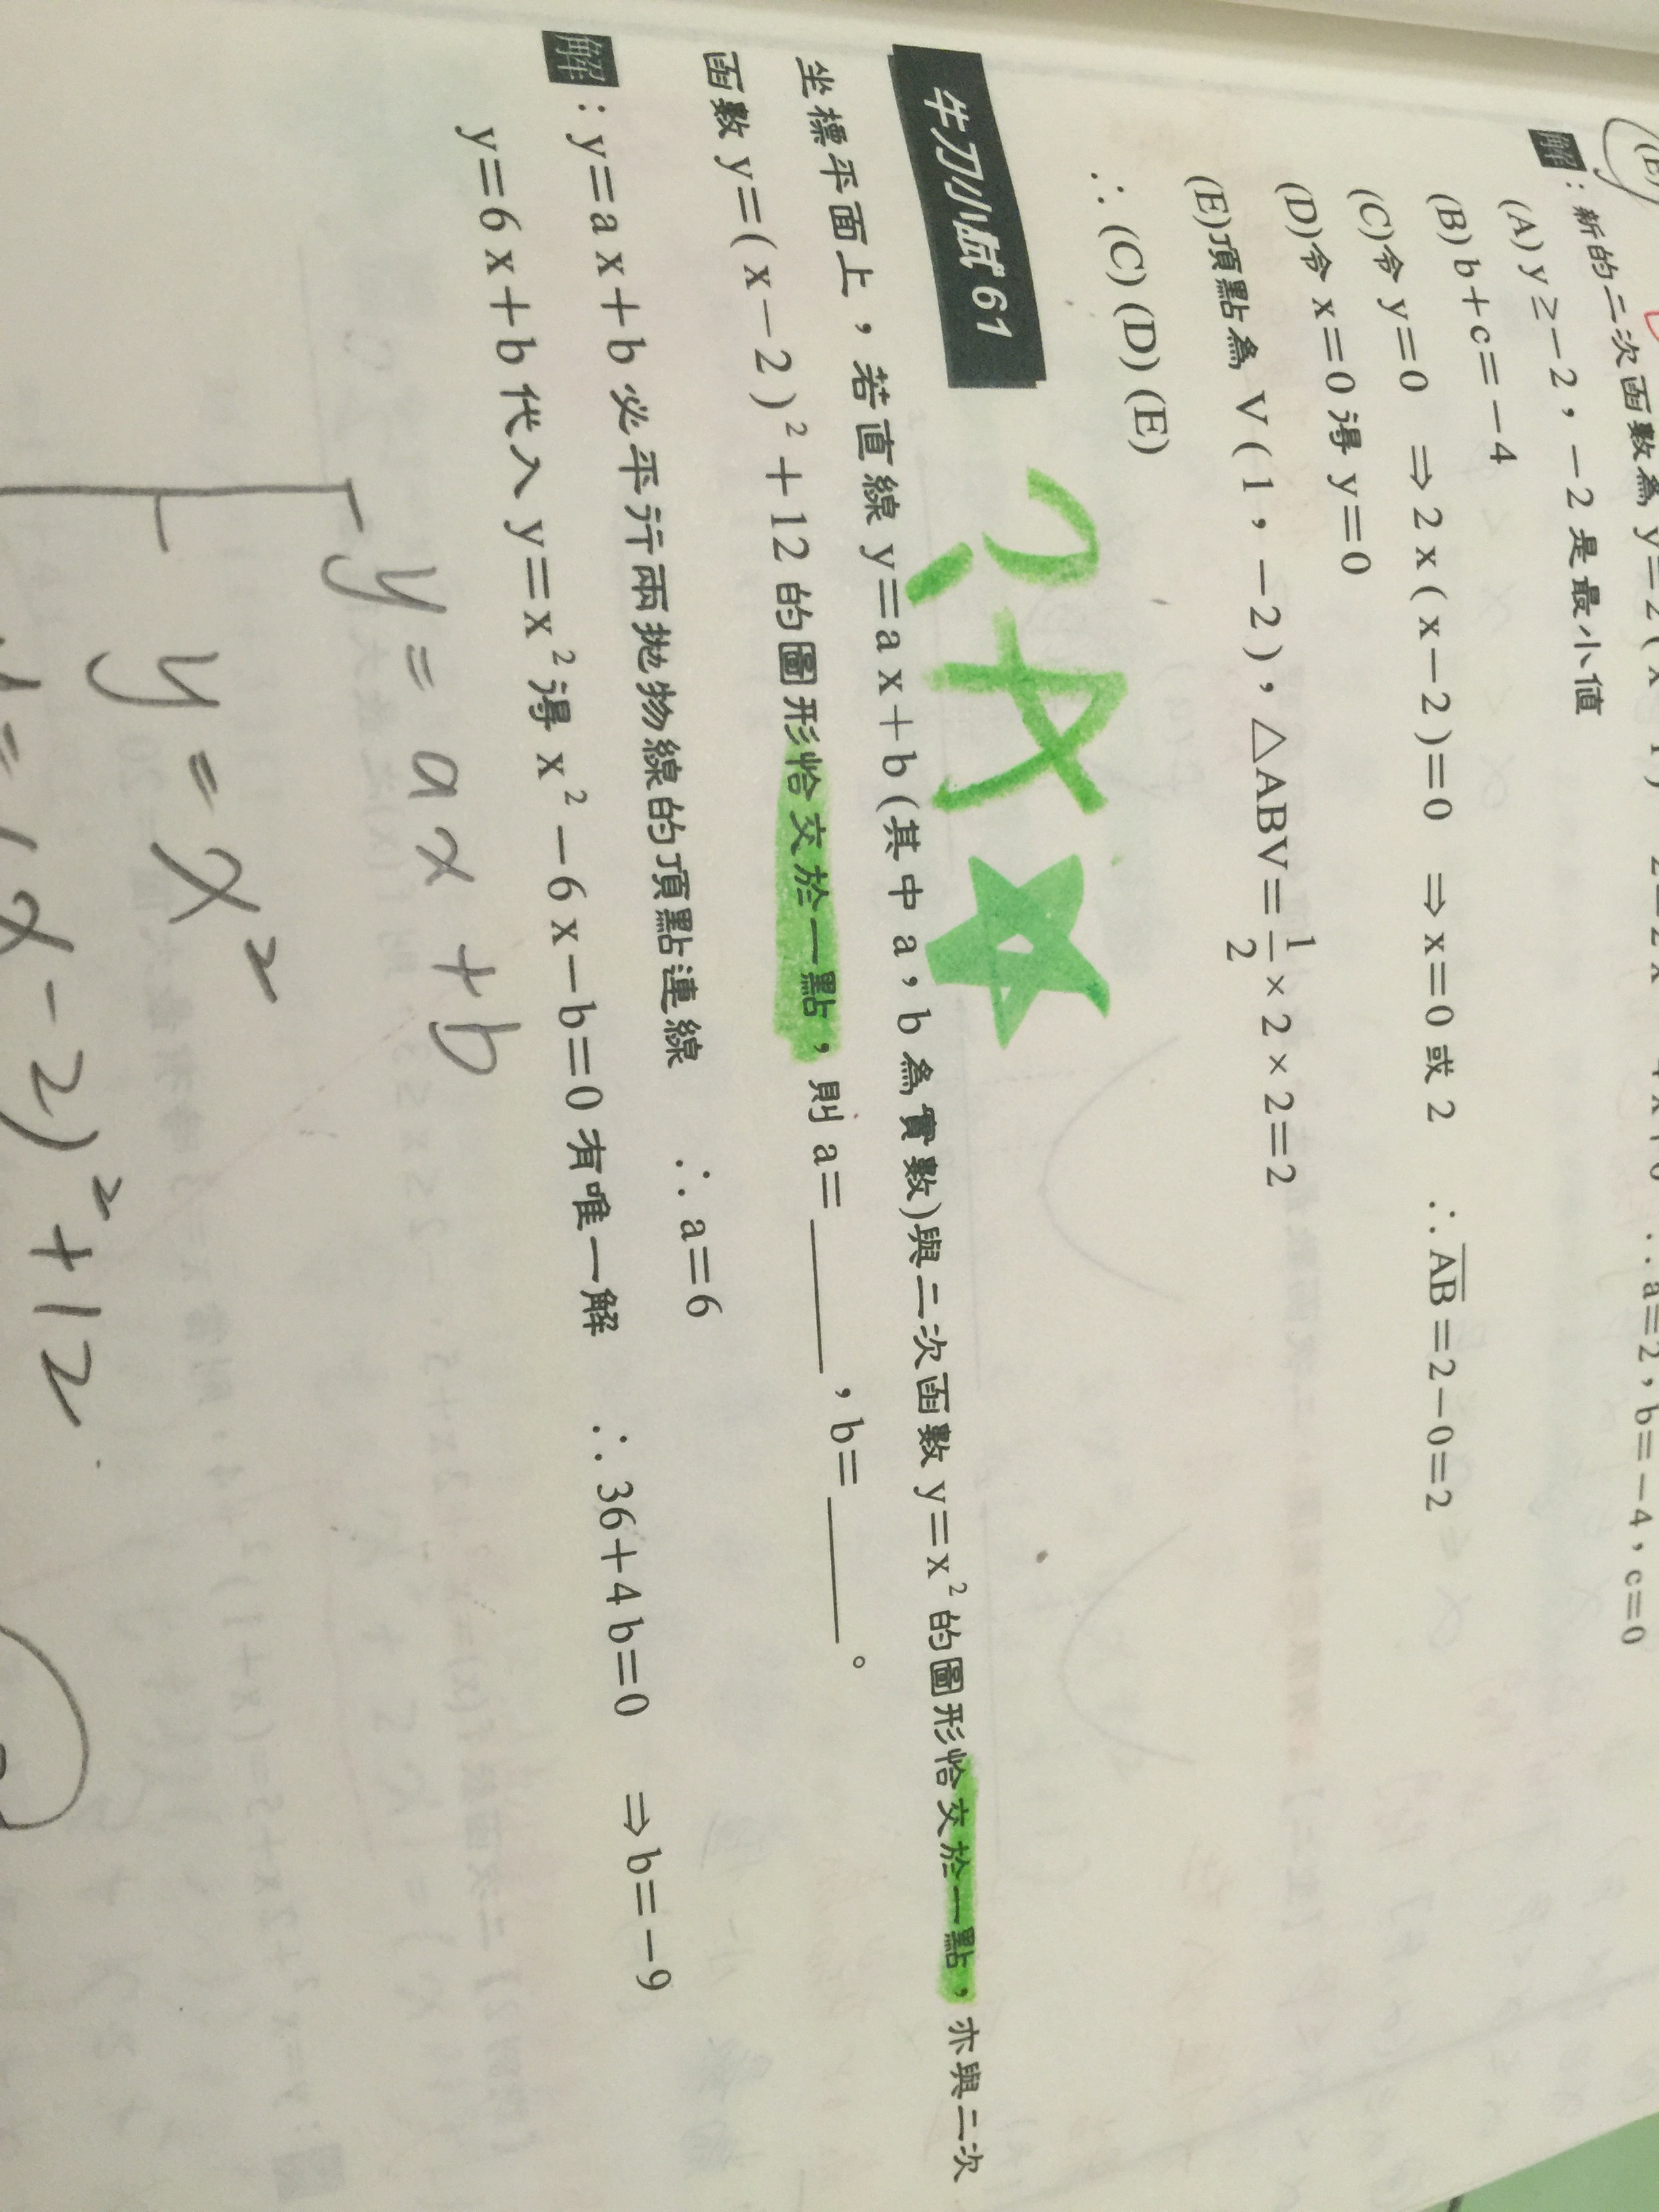 解：新的二次函數為 y=2(x-1)²-2=2x²-4x+0 ∴a=2，b=-4，c=0
(A) y≥-2，-2是最小值
(B) b+c=-4
(C)令 y=0 ⇒2x(x-2)=0 ⇒x=0或2 ∴AB=2-0=2
(D)令 x=0得 y=0
(E)頂點為 V(1，-2)，△ABV=1/2×2×2=2
∴(C)(D)(E)
牛刀小試 61
坐標平面上，若直線 y=ax+b(其中 a，b為實數)與二次函數 y=x²的圖形恰交於一點，亦與二次
函數 y=(x-2)²+12的圖形恰交於一點，則 a=______，b=______。
解：y=ax+b必平行兩拋物線的頂點連線 ∴a=6
y=6x+b代入 y=x²得 x²-6x-b=0有唯一解 ∴36+4b=0 ⇒b=-9
y=ax+b
y=x²
y=(x-2)²+12